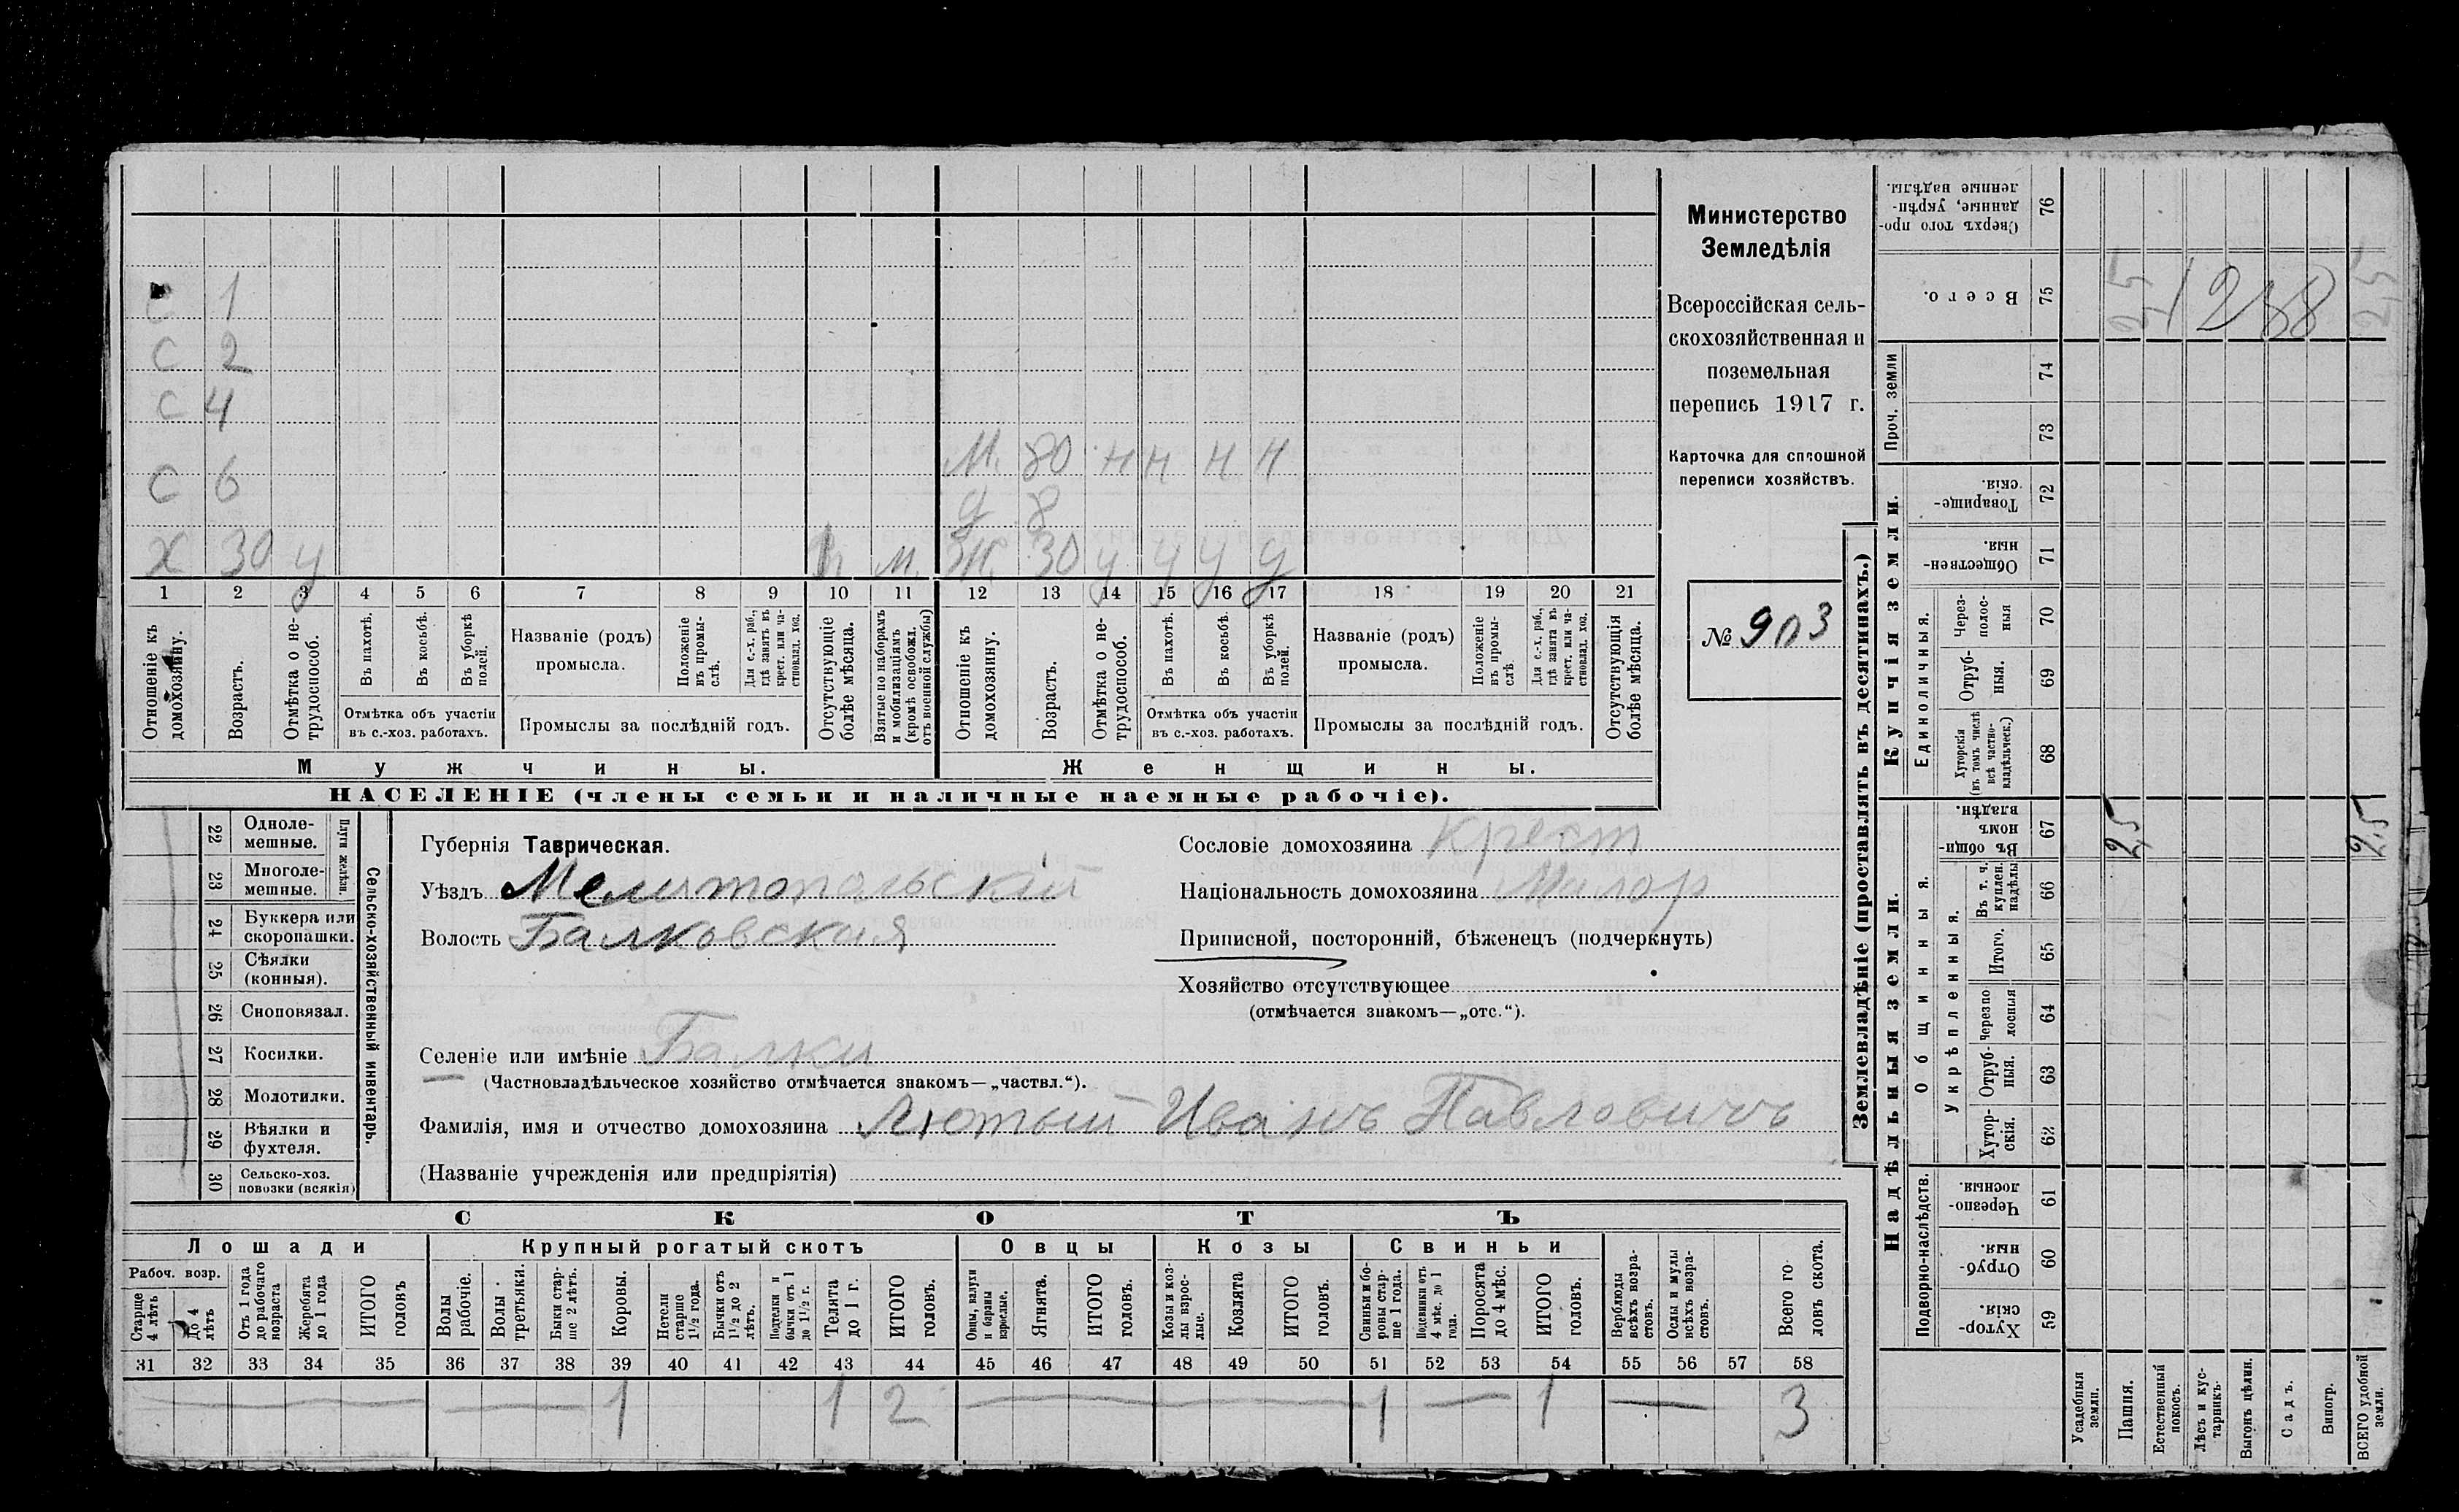 С 1
С 2
С 4
С 6
Х 30 у
м.
М. 80 н н н н
д 8
Ж. 30 у у у у
1 2 3 4 5 6 7 8 9 10 11 12 13 14 15 16 17 18 19 20 21
Отношеніе къ домохозяину.
Возрастъ.
Отмѣтка о не-трудоспособ.
Въ пахотѣ.
Въ косьбѣ.
Въ уборкѣ полей.
Отмѣтка объ участіи
въ с.-хоз. работахъ.
Названіе (родъ)
промысла.
Положеніе въ промы-слѣ.
Для с.-х. раб., гдѣ занятъ въ крест. или ча-стновлад. хоз.
Промыслы за послѣдній годъ.
Отсутствующіе болѣе мѣсяца.
Взятые по наборамъ и мобилизаціямъ (кромѣ освобожд. отъ военной службы)
Отношеніе къ домохозяину.
Возрастъ.
Отмѣтка о не-трудоспособ.
Въ пахотѣ.
Въ косьбѣ.
Въ уборкѣ полей.
Отмѣтка объ участіи
въ с.-хоз. работахъ.
Названіе (родъ)
промысла.
Положеніе въ промы-слѣ.
Для с.-х. раб., гдѣ занята въ крест. или ча-стновлад. хоз.
Промыслы за послѣдній годъ.
Отсутствующія болѣе мѣсяца.
Мужчины.
Женщины.
НАСЕЛЕНІЕ (члены семьи и наличные наемные рабочіе).
Министерство
Земледѣлія
Всероссійская сель-
скохозяйственная и
поземельная
перепись 1917 г.
Карточка для сплошной
переписи хозяйствъ.
№ 903
22 Однолемешные.
23 Многолемешные.
Плуги желѣзн.
24 Буккера или скоропашки.
25 Сѣялки (конныя).
26 Сноповязал.
27 Косилки.
28 Молотилки.
29 Вѣялки и фухтеля.
30 Сельско-хоз. повозки (всякія)
Сельско-хозяйственный инвентарь.
Губернія Таврическая.
Уѣздъ Мелитопольскій
Волость Балковская
Селеніе или имѣніе Балки
(Частновладѣльческое хозяйство отмѣчается знакомъ—„частвл.“).
Фамилія, имя и отчество домохозяина Лютый Иванъ Павловичъ
(Названіе учрежденія или предпріятія)
Сословіе домохозяина Крест
Національность домохозяина Малор
Приписной, посторонній, бѣженецъ (подчеркнуть)
Хозяйство отсутствующее
(отмѣчается знакомъ—„отс.“).
СКОТЪ
Лошади Крупный рогатый скотъ Овцы Козы Свиньи
Рабоч. возр.
Старше 4 лѣтъ
До 4 лѣтъ
Отъ 1 года до рабочаго возраста
Жеребята до 1 года
ИТОГО головъ
Волы рабочіе.
Волы третьяки.
Быки стар-ше 2 лѣтъ.
Коровы.
Нетели старше 1½ года.
Бычки отъ 1½ до 2 лѣтъ.
Подтелки и бычки отъ 1 до 1½ г.
Телята до 1 г.
ИТОГО головъ.
Овцы, валухи и бараны взрослые.
Ягнята.
ИТОГО головъ.
Козы и коз-лы взрос-лые.
Козлята
ИТОГО головъ.
Свиньи и бо-ровы стар-ше 1 года.
Подсвинки отъ 4 мѣс. до 1 года.
Поросята до 4 мѣс.
ИТОГО головъ.
Верблюды всѣхъ возра-стовъ.
Ослы и мулы всѣхъ возра-стовъ.
Всего го-ловъ скота.
31 32 33 34 35 36 37 38 39 40 41 42 43 44 45 46 47 48 49 50 51 52 53 54 55 56 57 58
1 1 2 1 1 3
Землевладѣніе (проставлять въ десятинахъ.)
Надѣльныя земли.
Купчія земли.
Проч. земли
Подворно-наслѣдств.
Общинныя.
Укрѣпленныя.
Единоличныя.
Сверхъ того про-данные, укрѣп-ленные надѣлы. 76
Всего. 75
74
73
Товарище-скія. 72
Обществен-ныя. 71
Через-полос-ныя 70
Отруб-ныя. 69
Хуторскія (въ томъ числѣ всѣ частно-владѣльческ.) 68
Въ общин-номъ владѣн. 67
Въ т. ч. куплен. надѣлы 66
Итого. 65
Черезпо-лосныя 64
Отруб-ныя. 63
Хутор-скія. 62
Черезпо-лосныя. 61
Отруб-ныя. 60
Хутор-скія. 59
Усадебныя земли.
Пашня.
Естественный покосъ.
Лѣсъ и кус-тарникъ.
Выгонъ цѣлин.
Садъ.
Виногр.
ВСЕГО удобной земли.
25
25
25
25